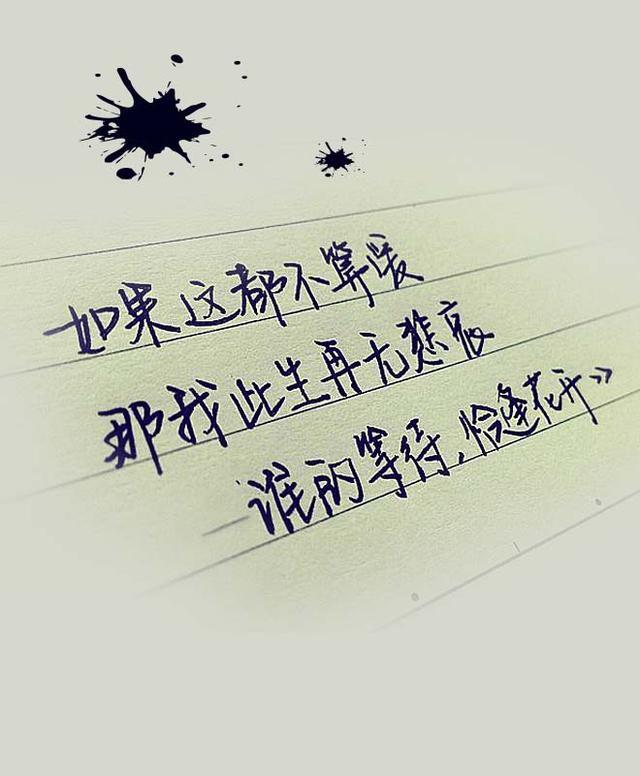 如果这都不算爱
那我此生再无悲哀
—谁的等待,恰逢花开》